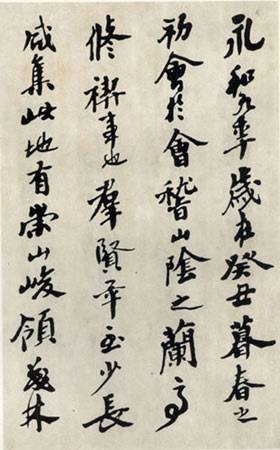 永和九年歲在癸丑暮春之
初會於會稽山陰之蘭亭
脩禊事也羣賢畢至少長
咸集此地有崇山峻領茂林